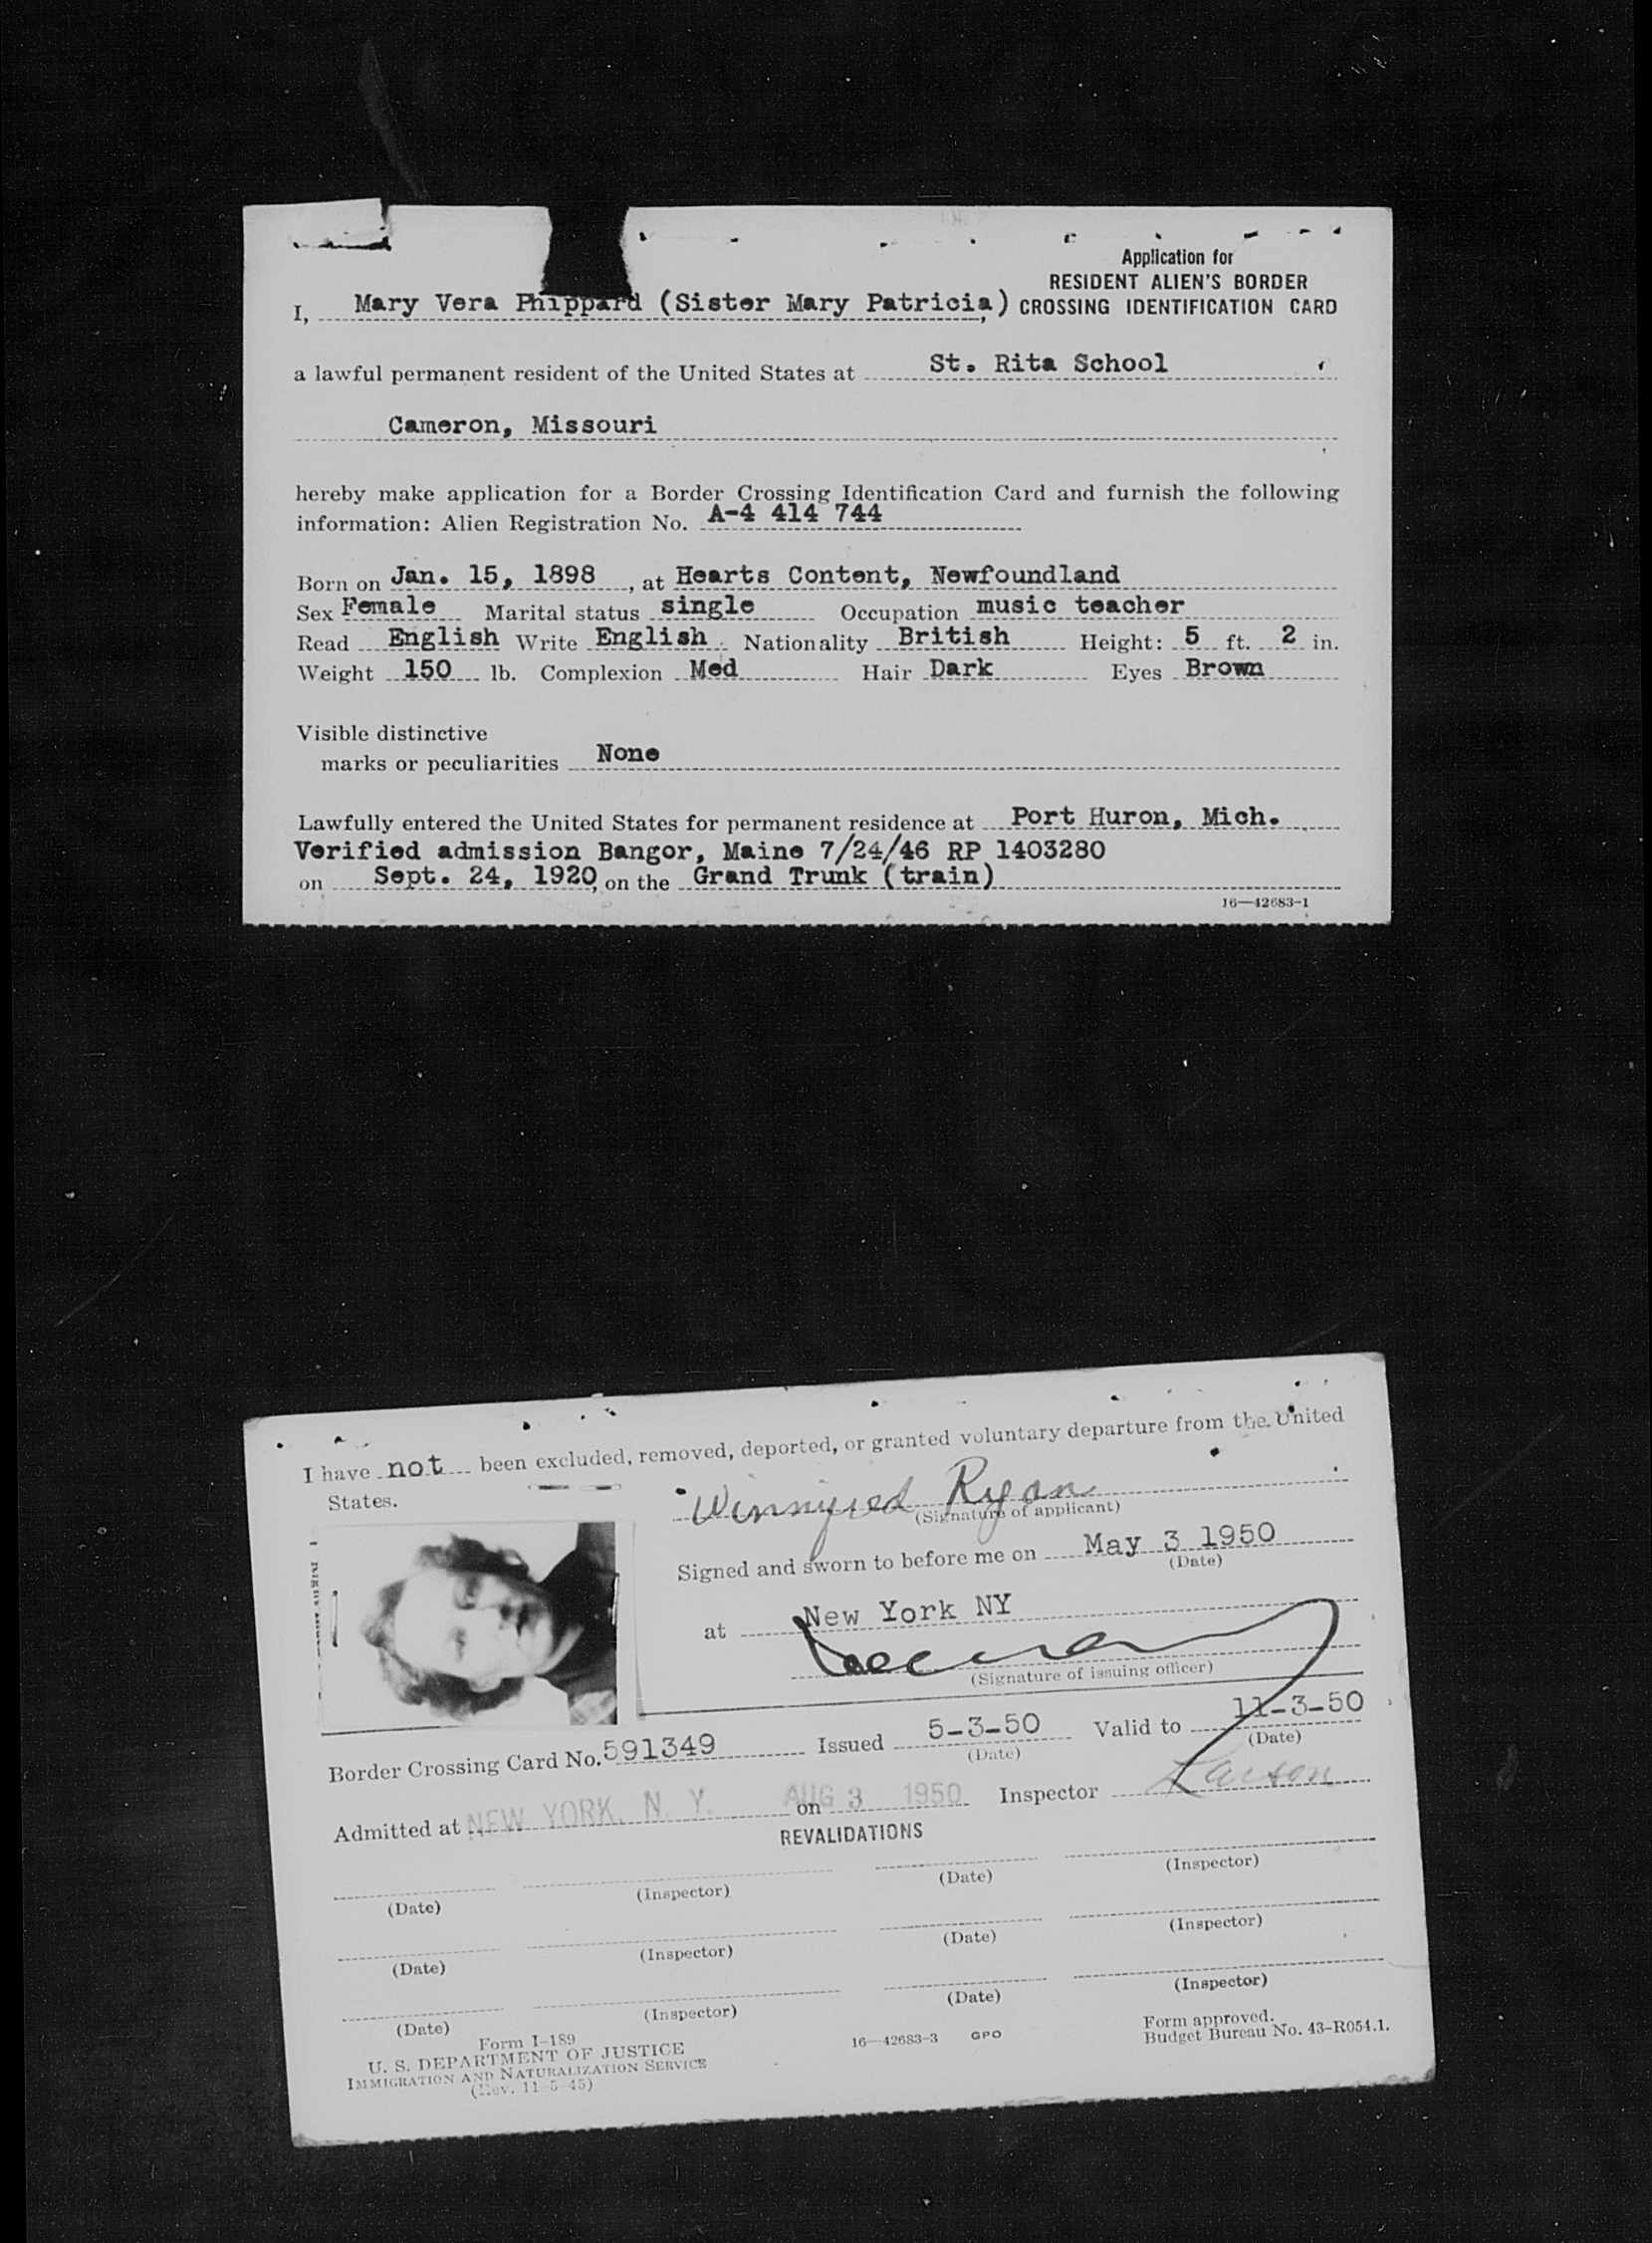 Application for
RESIDENT ALIEN'S BORDER
CROSSING IDENTIFICATION CARD
I, Mary Vera Phippard (Sister Mary Patricia)
a lawful permanent resident of the United States at St. Rita School
Cameron, Missouri
hereby make application for a Border Crossing Identification Card and furnish the following
information: Alien Registration No. A-4 414 744
Born on Jan. 15, 1898, at Hearts Content, Newfoundland
Sex Female Marital status single Occupation music teacher
Read English Write English Nationality British Height: 5 ft. 2 in.
Weight 150 lb. Complexion Med Hair Dark Eyes Brown
Visible distinctive
marks or peculiarities None
Lawfully entered the United States for permanent residence at Port Huron, Mich.
Verified admission Bangor, Maine 7/24/46 RP 1403280
on Sept. 24, 1920, on the Grand Trunk (train)
16—42683-1
I have not been excluded, removed, deported, or granted voluntary departure from the United
States.
Winnifred Ryan
(Signature of applicant)
Signed and sworn to before me on May 3 1950
(Date)
at New York NY
(Signature of issuing officer)
Border Crossing Card No. 591349 Issued 5-3-50 Valid to 11-3-50
(Date) (Date)
Admitted at NEW YORK, N. Y. on AUG 3 1950 Inspector Larson
REVALIDATIONS
(Date) (Inspector) (Date) (Inspector)
(Date) (Inspector) (Date) (Inspector)
(Date) (Inspector) (Date) (Inspector)
Form I-189
U. S. DEPARTMENT OF JUSTICE
IMMIGRATION AND NATURALIZATION SERVICE
(Rev. 11-5-45)
16—42683-3 GPO
Form approved.
Budget Bureau No. 43-R054.1.